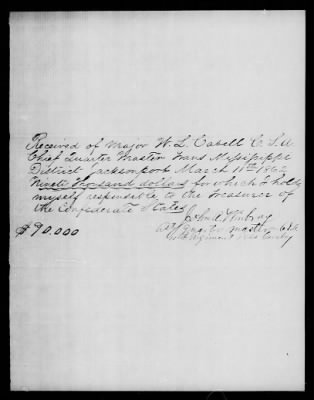 Received of Major W. L. Cabell C. S. A
Chief Quarter Master Trans Mississippi
District Jacksonport March 11th 1862
Ninety thousand dollars for which I hold
myself responsible to the Treasurer of
the Confederate States
John A
Quarter master
$90.000